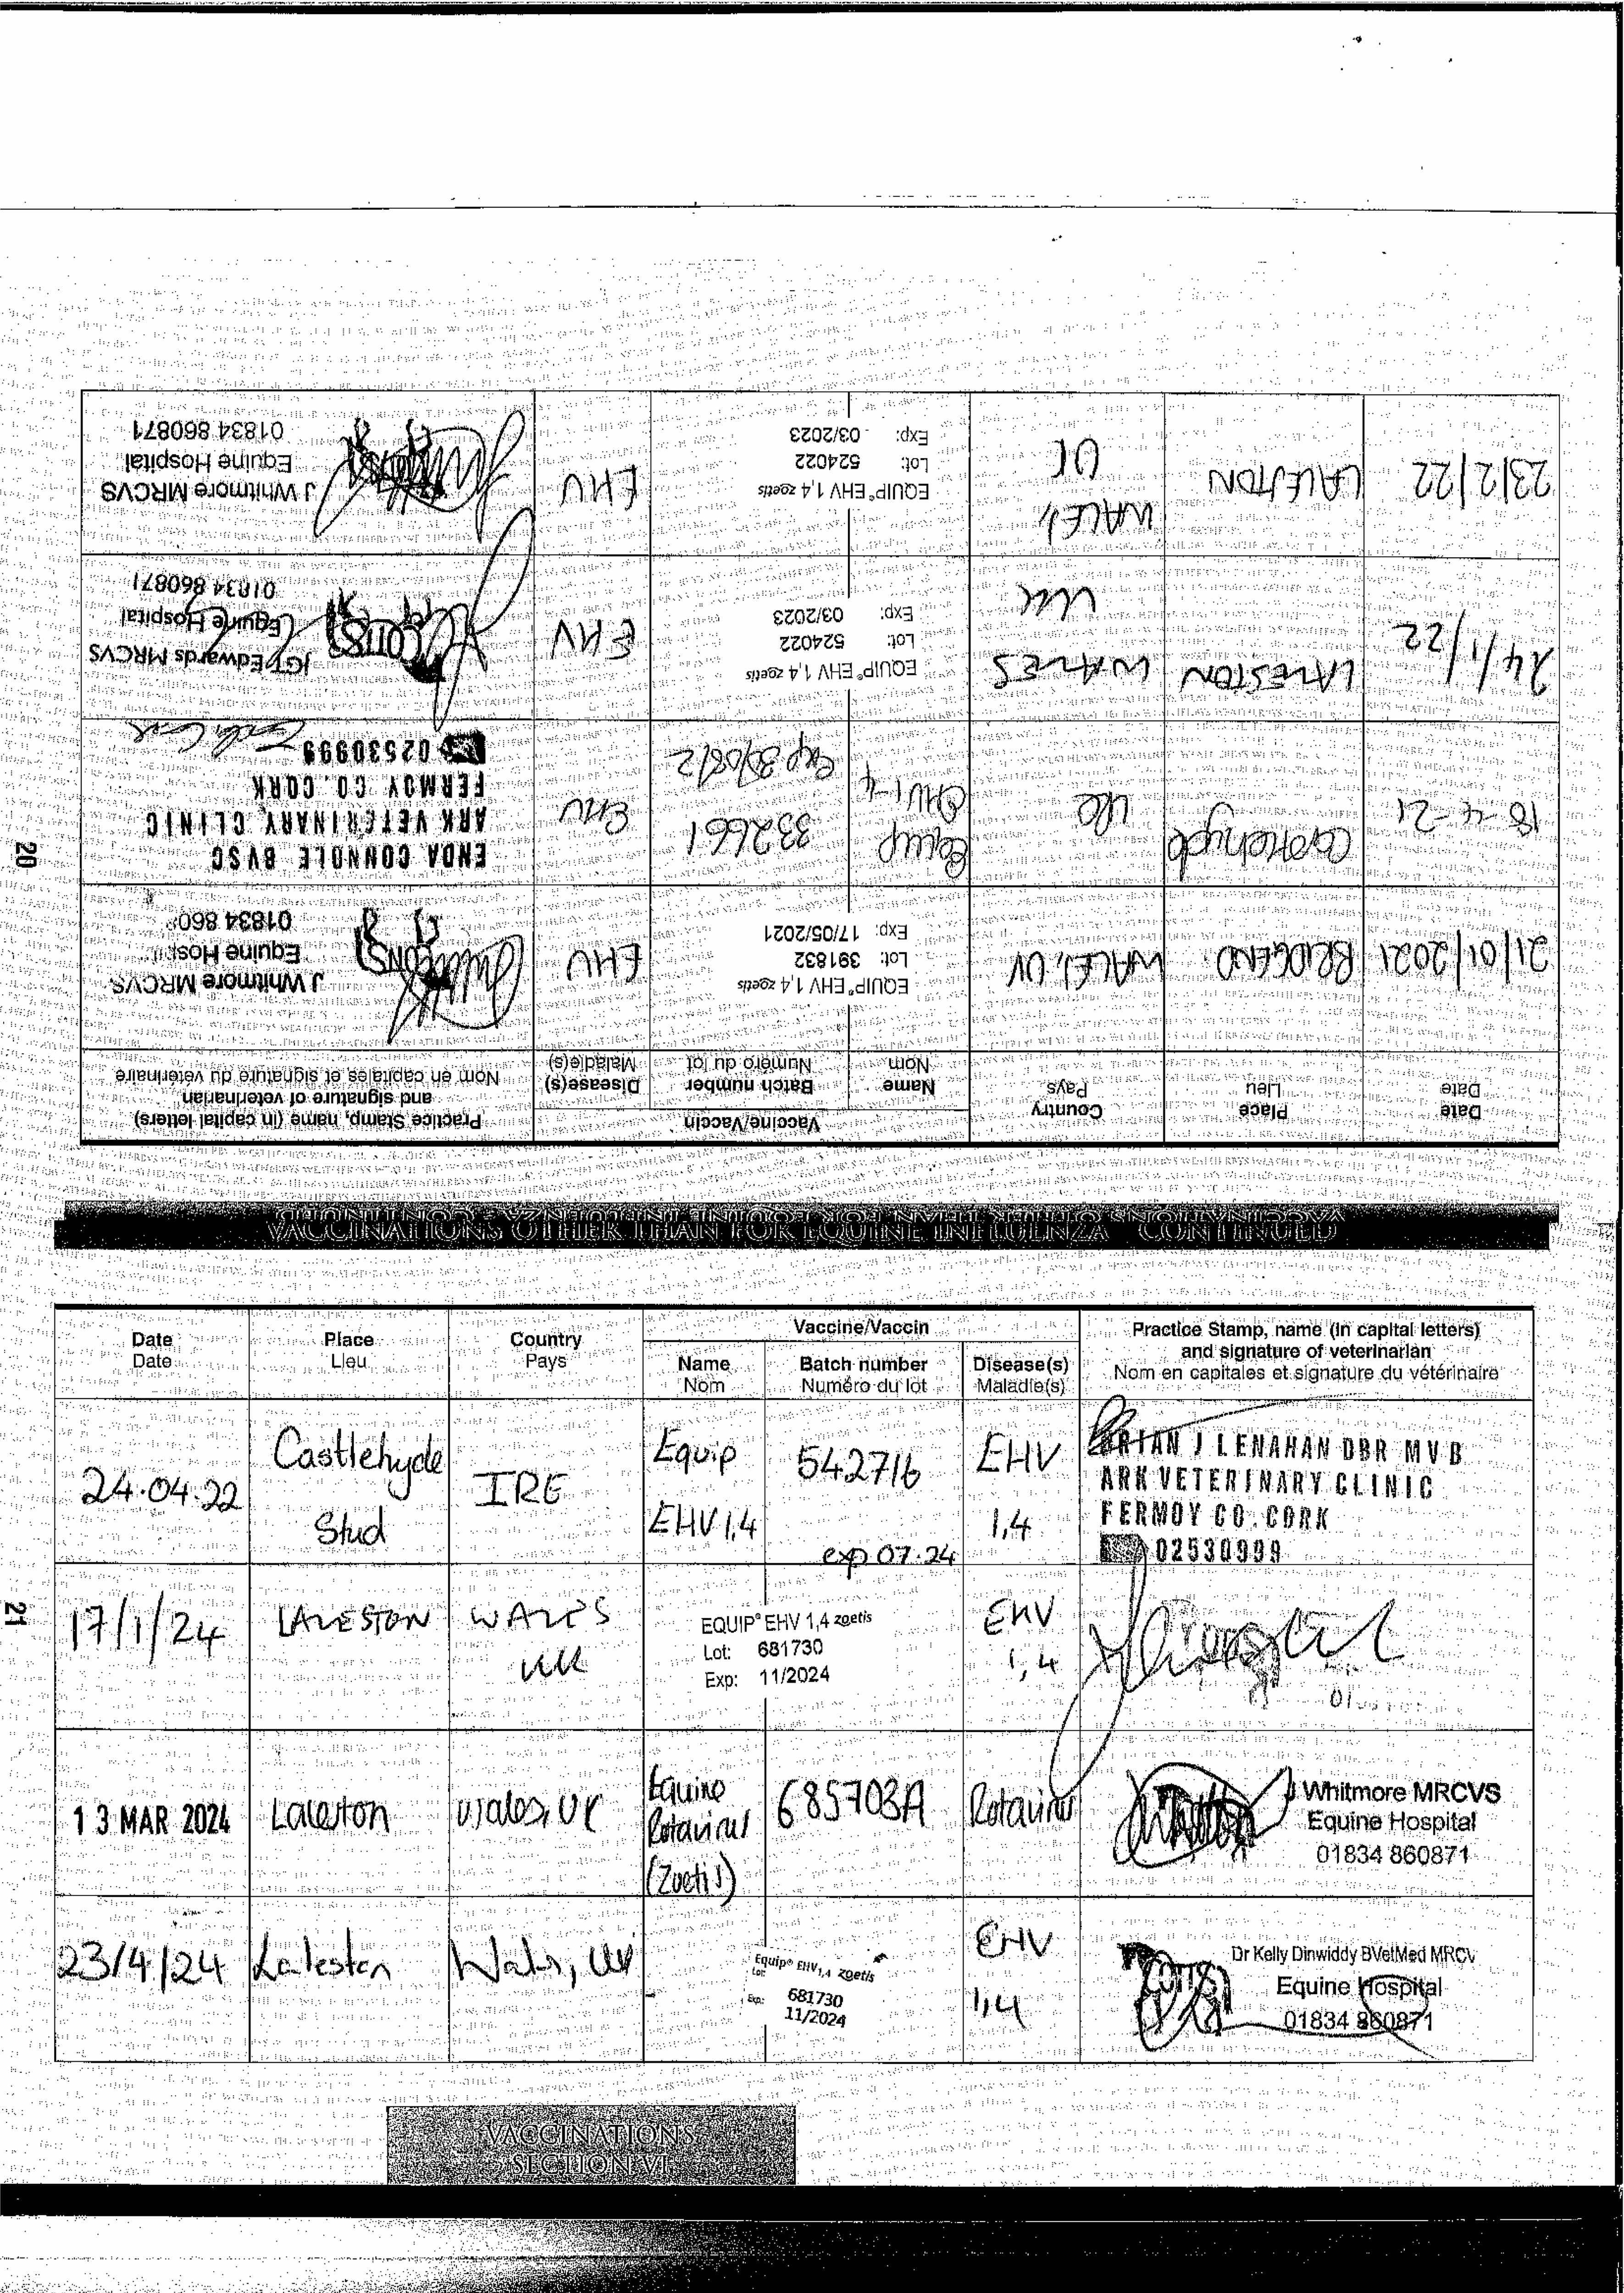 20
VACCINATIONS OTHER THAN FOR EQUINE INFLUENZA CONTINUED
Date
Date
Place
Lieu
Country
Pays
Vaccine/Vaccin
Name
Nom
Batch number
Numéro du lot
Disease(s)
Maladie(s)
Practice Stamp, name (in capital letters)
and signature of veterinarian
Nom en capitales et signature du vétérinaire
21/01/2021
BRIDGEND
WALES, UK
EQUIP® EHV 1,4 zoetis
Lot: 391832
Exp: 17/05/2021
EHV
J Whitmore MRCVS
Equine Hosp
01834 860
18-4-21
Castlehyde
Equip
EHV 1-4
332661
EHV
ENDA CONNOLE BVSC
ARK VETERINARY CLINIC
FERMOY CO. CORK
02530999
24/1/22
LALESTON
WALES
UK
EQUIP® EHV 1,4 zoetis
Lot: 524022
Exp: 03/2023
EHV
JGT Edwards MRCVS
Equine Hospital
01834 860871
23/2/22
LALESTON
WALES,
UK
EQUIP® EHV 1,4 zoetis
Lot: 524022
Exp: 03/2023
EHV
J Whitmore MRCVS
Equine Hospital
01834 860871
21
Date
Date
Place
Lieu
Country
Pays
Vaccine/Vaccin
Name
Nom
Batch number
Numéro du lot
Disease(s)
Maladie(s)
Practice Stamp, name (in capital letters)
and signature of veterinarian
Nom en capitales et signature du vétérinaire
24.04.22
Castlehyde
Stud
IRE
Equip
EHV 1,4
542716
exp 07.24
EHV
1,4
BRIAN J LENAHAN DBR MVB
ARK VETERINARY CLINIC
FERMOY CO. CORK
02530999
17/1/24
LALESTON
WALES
UK
EQUIP® EHV 1,4 zoetis
Lot: 681730
Exp: 11/2024
EHV
1,4
13 MAR 2024
Laleston
Wales, UK
Equine
Rotavirus
(Zoetis)
685703A
Rotavirus
J Whitmore MRCVS
Equine Hospital
01834 860871
23/4/24
Laleston
Wales, UK
Equip® EHV 1,4 zoetis
Lot:
Exp: 681730
11/2024
EHV
1,4
Dr Kelly Dinwiddy BVetMed MRCV
Equine Hospital
01834 860871
VACCINATIONS
SECTION VI